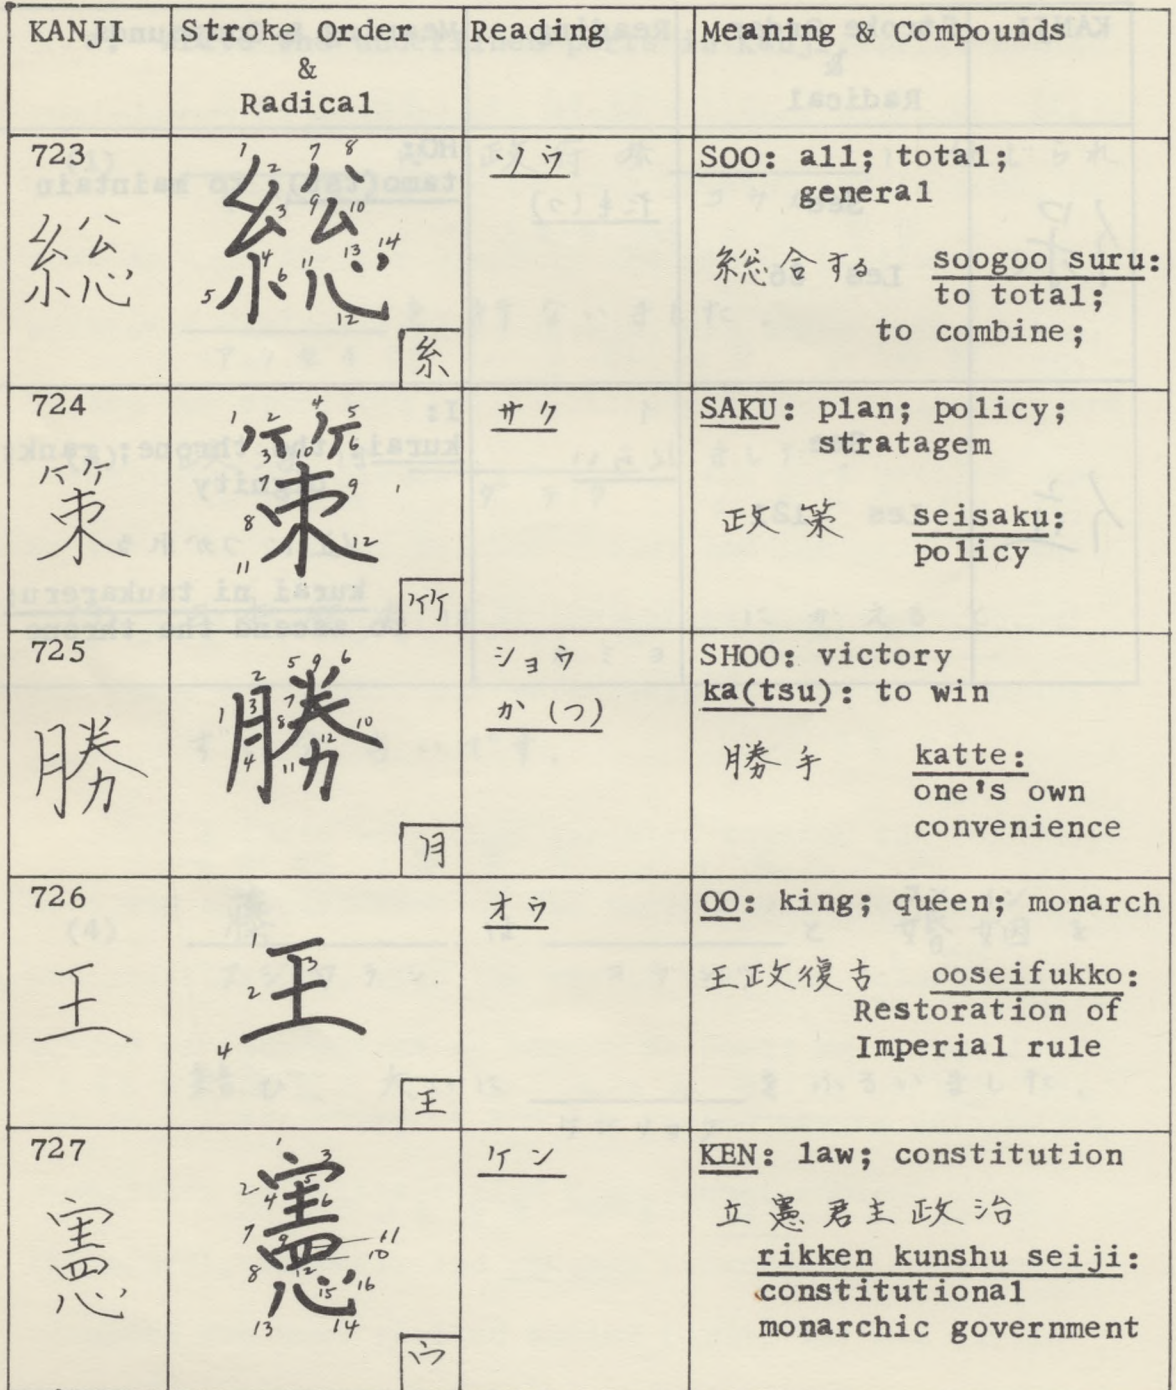 KANJI Stroke Order Reading Meaning & Compounds
&
Radical
723
総
総
1 2 3 4 5 6 7 8 9 10 11 12 13 14
糸
ソウ
SOO: all; total;
general
総合する soogoo suru:
to total;
to combine;
724
策
策
1 2 3 4 5 6 7 8 9 10 11 12
竹
サク
SAKU: plan; policy;
stratagem
政策 seisaku:
policy
725
勝
勝
1 2 3 4 5 6 7 8 9 10 11 12
月
ショウ
か(つ)
SHOO: victory
ka(tsu): to win
勝手 katte:
one's own
convenience
726
王
王
1 2 3 4
王
オウ
OO: king; queen; monarch
王政復古 ooseifukko:
Restoration of
Imperial rule
727
憲
憲
1 2 3 4 5 6 7 8 9 10 11 12 13 14 15 16
宀
ケン
KEN: law; constitution
立憲君主政治
rikken kunshu seiji:
constitutional
monarchic government